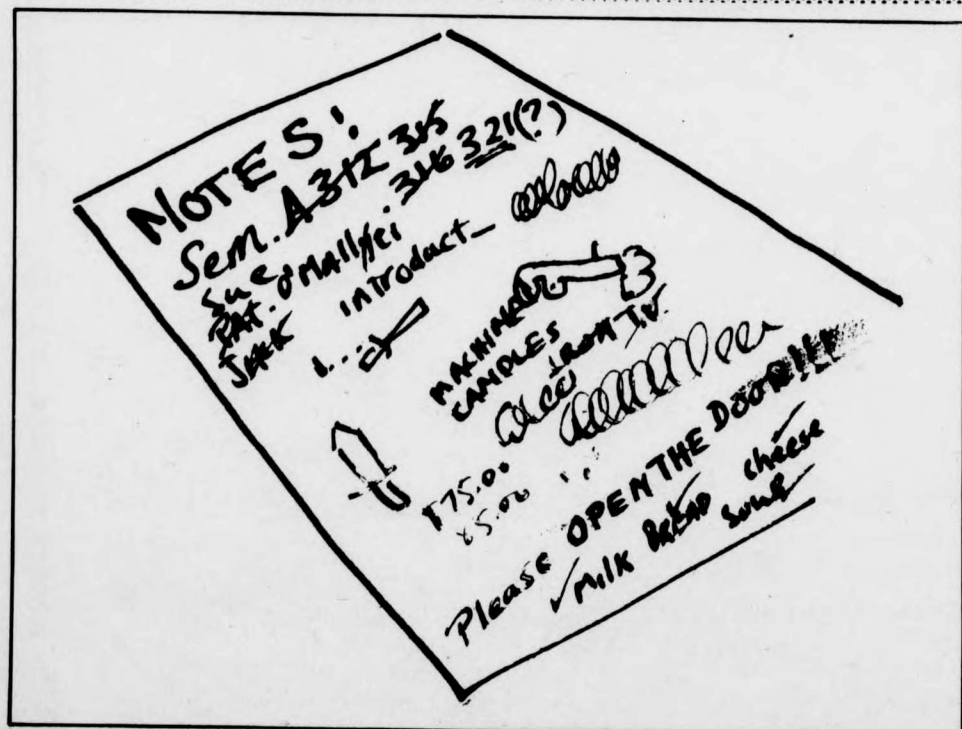 NOTES!
Sem. A 312 315
316 321(?)
Sue
PAT. O'MAll
JACK
introduct_
1...
MACHINE
CANDLES
IRON T.V.
175.00
85.00
Please OPEN THE DOOR!!!
✓ Milk BREAD cheese
soup